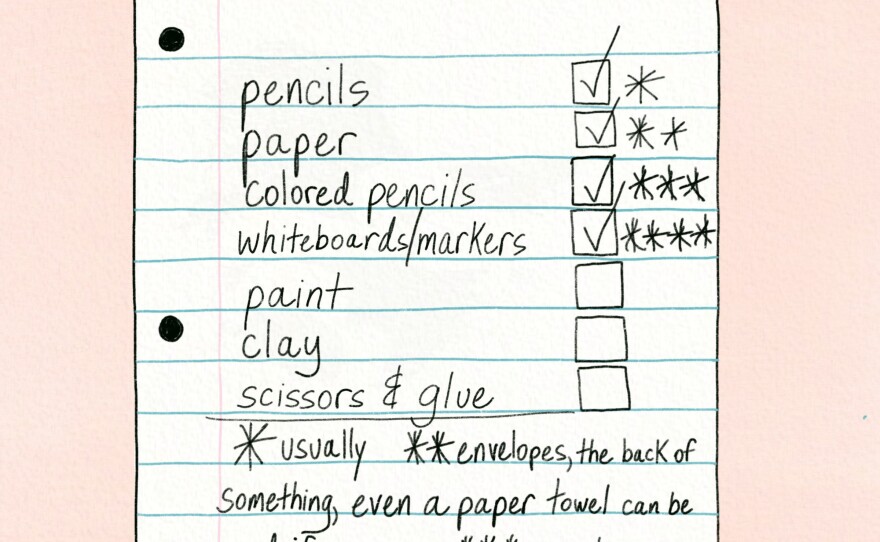 pencils ☑ *
paper ☑ **
colored pencils ☑ ***
whiteboards/markers ☑ ****
paint ☐
clay ☐
scissors & glue ☐
* usually ** envelopes, the back of
something, even a paper towel can be